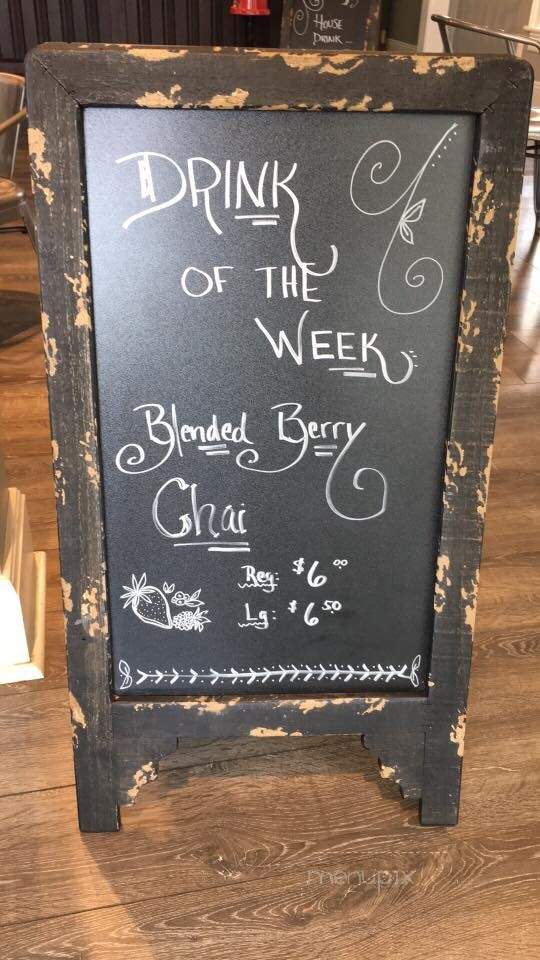 HOUSE
DRINK
DRINK
OF THE
WEEK
Blended Berry
Chai
Reg: $6.00
Lg: $6.50
menupix